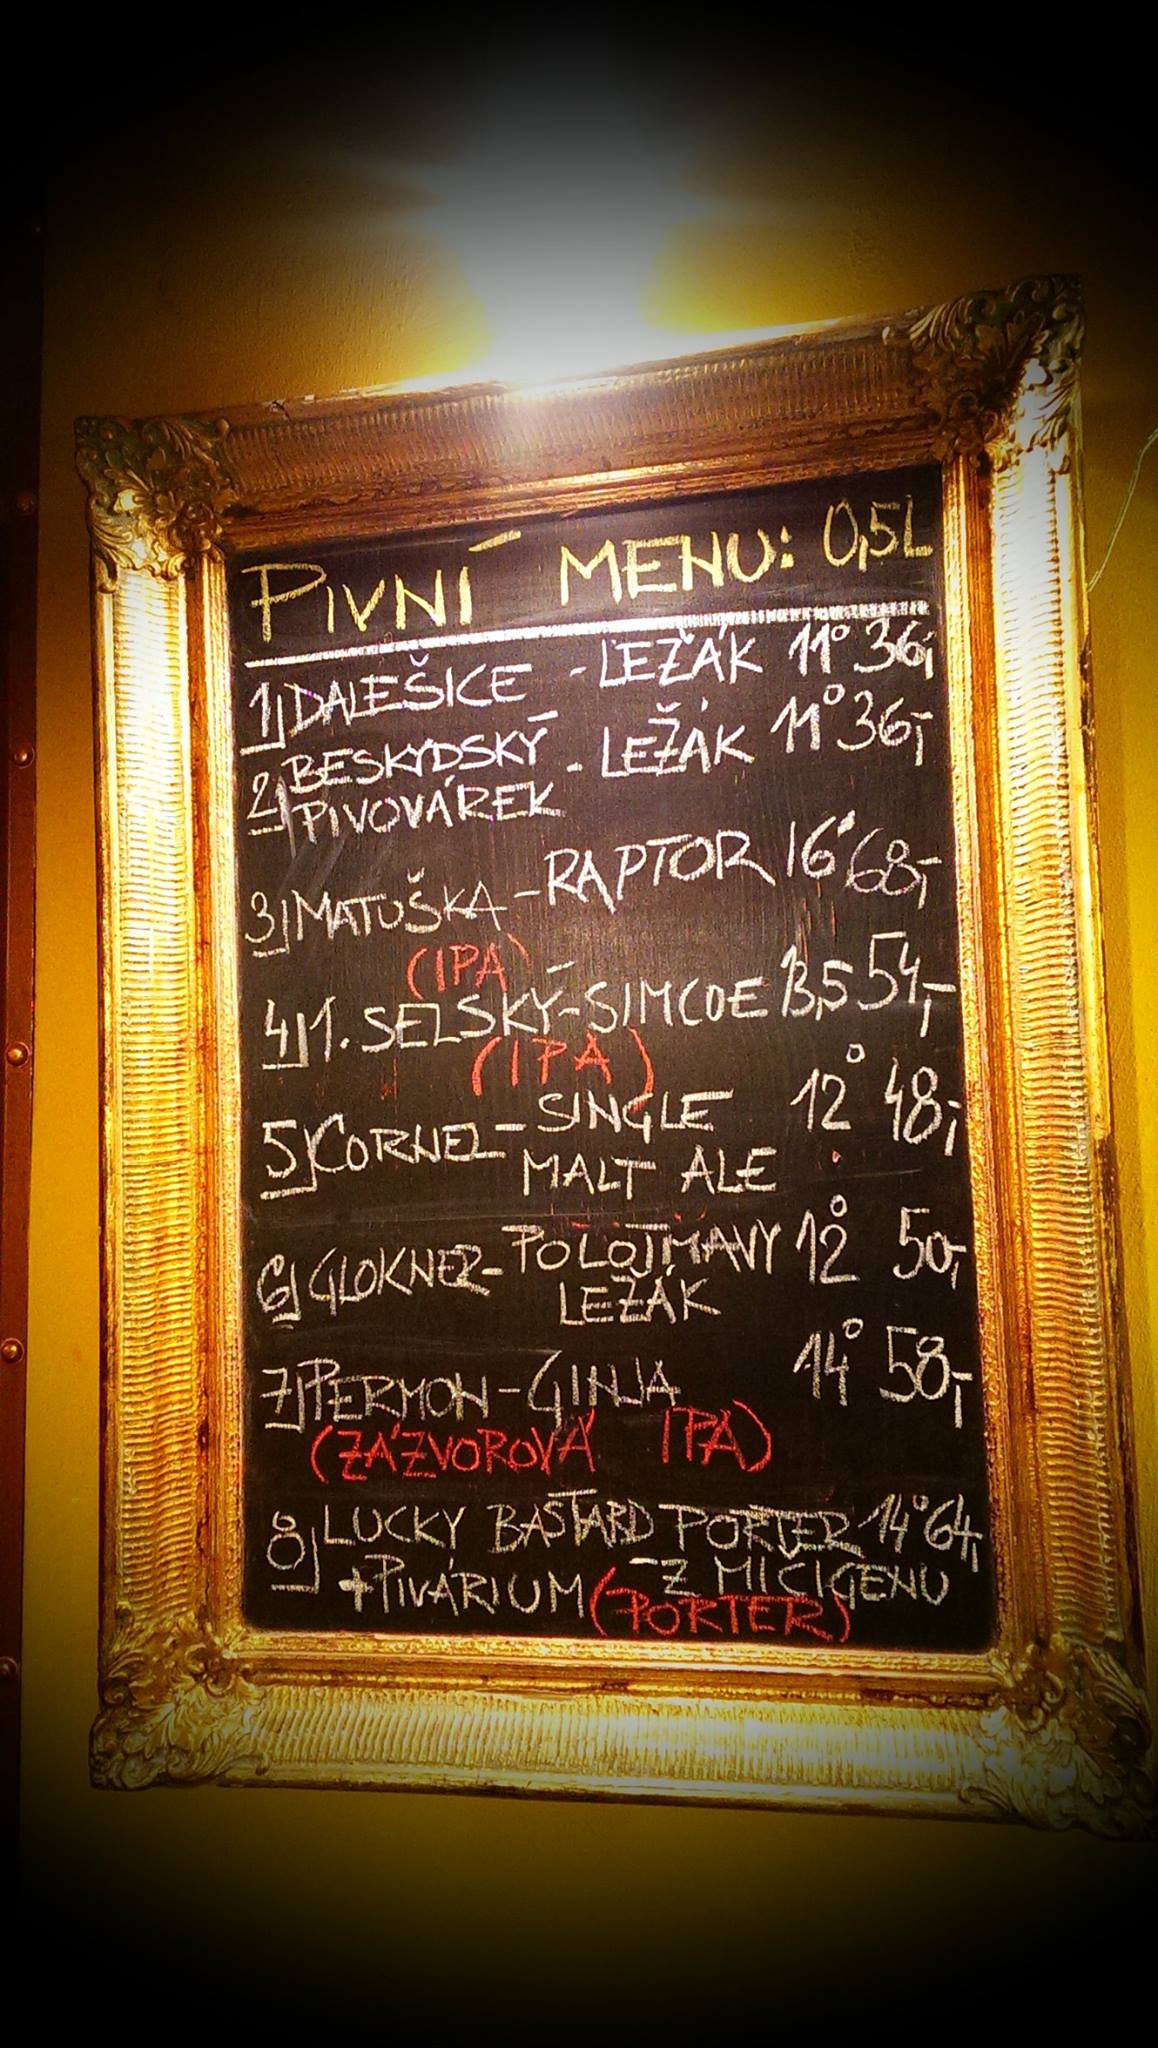 PIVNÍ MENU: 0,5L
1) DALEŠICE - LEŽÁK 11° 36,-
2) BESKYDSKÝ - LEŽÁK 11° 36,-
PIVOVÁREK
3) MATUŠKA - RAPTOR 16° 68,-
(IPA)
4) 1. SELSKÝ - SIMCOE 13,5 54,-
(IPA)
5) CORNEL - SINGLE 12° 48,-
MALT ALE
6) GLOKNER - POLOTMAVÝ 12° 50,-
LEŽÁK
7) PERMON - GINJA 14° 58,-
(ZÁZVOROVÁ IPA)
8) LUCKY BASTARD PORTER 14° 64,-
+ PIVÁRIUM - Z MIČIGENU
(PORTER)